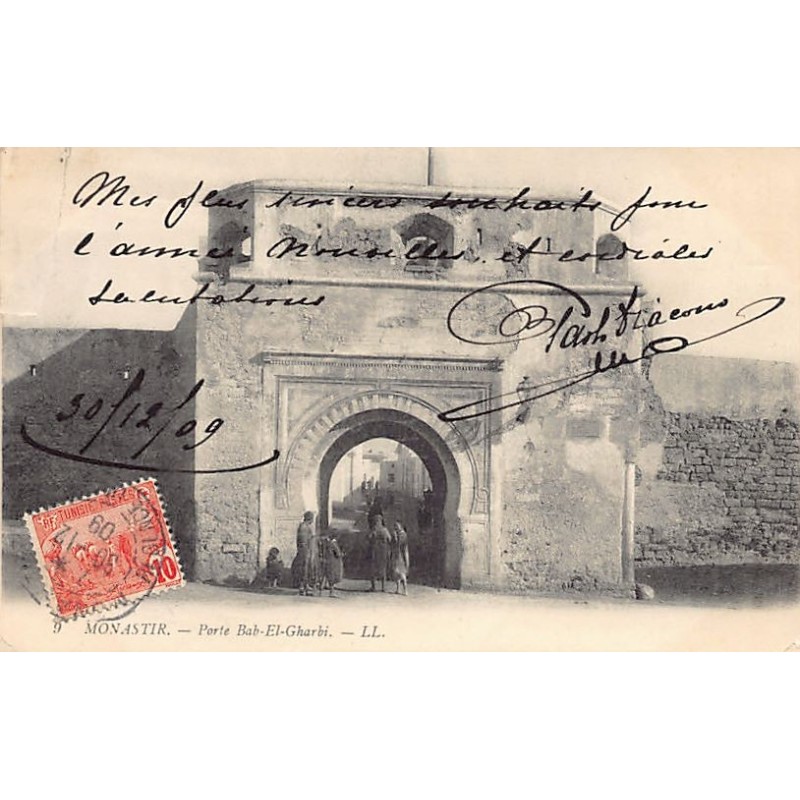 Mes plus sincères souhaits pour
l'année Nouvelles et cordiales
salutations
Diacono
30/12/09
TUNISIE
10
9 MONASTIR. — Porte Bab-El-Gharbi. — LL.